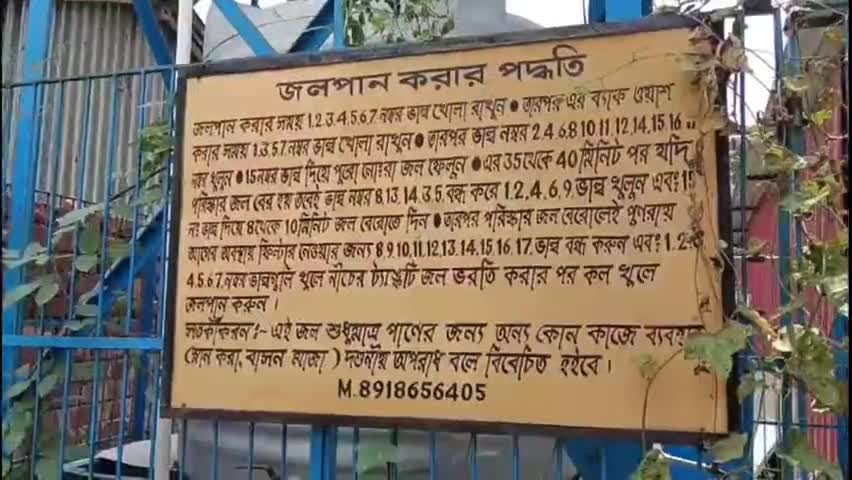 জলপান করার পদ্ধতি
জলপান করার সময় 1.2.3.4.5.6.7 নম্বর ভাল্ব খোলা রাখুন • তারপর এর ব্যাক ওয়াশ
করার সময় 1.3.5.7 নম্বর ভাল্ব খোলা রাখুন • তারপর ভাল্ব নম্বর 2.4.6.8.10.11.12.14.15.16
নম্বর খুলুন • 15 নম্বর ভাল্ব দিয়ে পুরো নোংরা জল ফেলুন • এর 35 থেকে 40 মিনিট পর যদি
পরিস্কার জল বের হয় তবেই ভাল্ব নম্বর 8.13.14.3.5. বন্ধ করে 1.2.4.6.9. ভাল্ব খুলুন এবং 15
নং ভাল্ব দিয়ে 8 থেকে 10 মিনিট জল বেরোতে দিন • তারপর পরিস্কার জল বেরোলেই পুণরায়
আগের অবস্থায় ফিল্টার নেওয়ার জন্য 8.9.10.11.12.13.14.15.16.17. ভাল্ব বন্ধ করুন এবং 1.2.3
4.5.6.7. নম্বর ভাল্বগুলি খুলে নীচের ট্যাঙ্কটি জল ভরতি করার পর কল খুলে
জলপান করুন ।
সতর্কীকরন :- এই জল শুধুমাত্র পাণের জন্য অন্য কোন কাজে ব্যবহার
(স্নান করা, বাসন মাজা ) দন্ডনীয় অপরাধ বলে বিবেচিত হইবে ।
M.8918656405